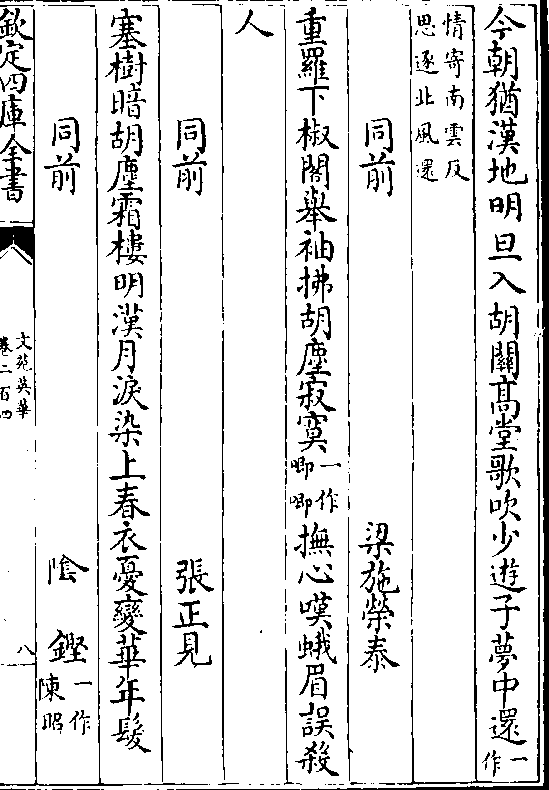 今朝猶漢地明旦入胡關高堂歌吹少遊子夢中還一作
情寄南雲反
思逐北風還
同前 梁施榮泰
重羅下椒閣舉袖拂胡塵寂寞一作唧唧撫心嘆蛾眉誤殺
人
同前 張正見
塞樹暗胡塵霜樓明漢月淚染上春衣憂變華年髮
同前 陰鏗一作陳昭
欽定四庫全書
文苑英華
卷二百四
八